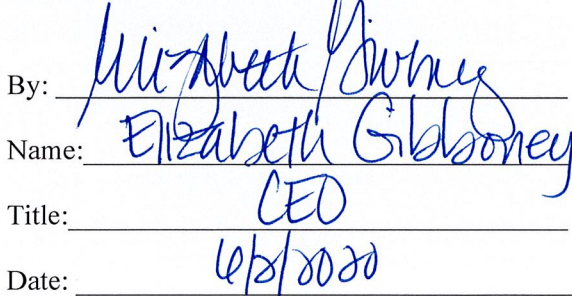 By: Elizabeth Gibboney
Name: Elizabeth Gibboney
Title: CEO
Date: 6/2/2020